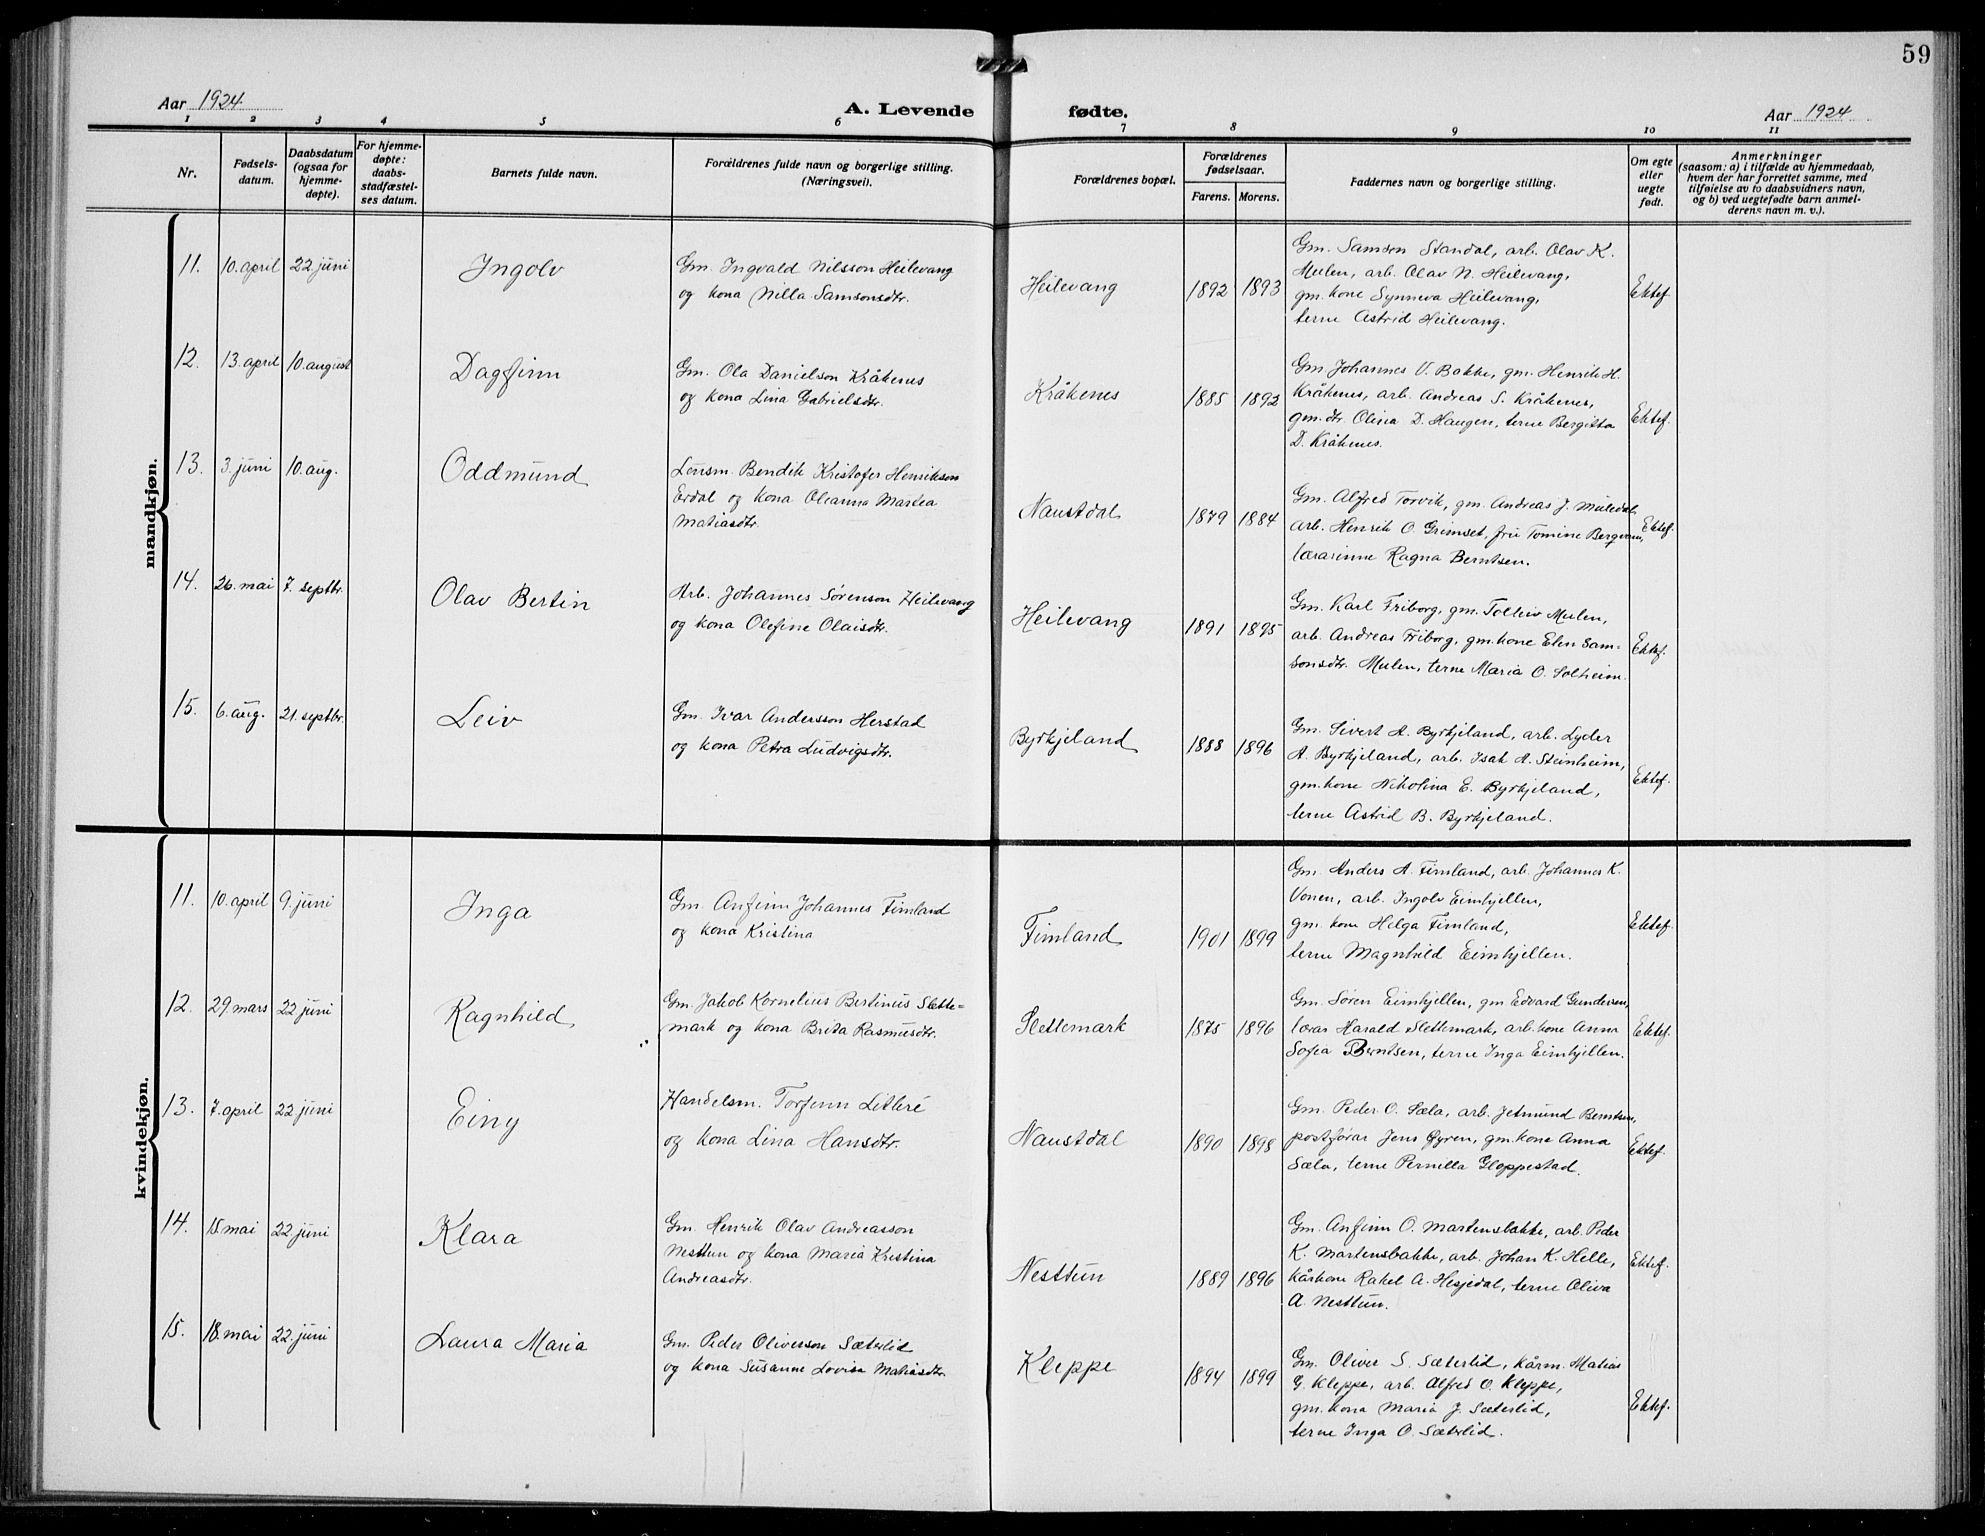 59
Aar 1924
A. Levende fødte.
Aar 1924
1 2 3 4 5 6 7 8 9 10 11
Nr.
Fødsels-
datum.
Daabsdatum
(ogsaa for
hjemme-
døpte).
For hjemme-
døpte:
daabs-
stadfæstel-
ses datum.
Barnets fulde navn.
Forældrenes fulde navn og borgerlige stilling.
(Næringsvei).
Forældrenes bopæl.
Forældrenes
fødselsaar.
Farens. Morens.
Faddernes navn og borgerlige stilling.
Om egte
eller
uegte
født.
Anmerkninger
(saasom: a) i tilfælde av hjemmedaab,
hvem der har forrettet samme, med
tilføielse av to daabsvidners navn,
og b) ved uegtefødte barn anmel-
derens navn m. v.).
mandkjøn.
11. 10. april 22. juni Ingolv
Gm. Ingvald Nilsson Heilevang
og kona Nilla Samsonsdtr.
Heilevang 1892 1893
Gm. Samson Standal, arb. Olav K.
Mulen, arb. Olav N. Heilevang,
gm. kone Synneva Heilevang,
terne Astrid Heilevang.
Ektef.
12. 13. april 10. august Dagfinn
Gm. Ola Danielson Kråkenes
og kona Lina Gabrielsdtr.
Kråkenes 1885 1892
Gm Johannes V. Bakke, gm. Henrik H.
Kråkenes, arb. Andreas S. Kråkenes,
gm. dtr. Olina D. Haugen, terne Bergitta
D. Kråkenes.
Ektef.
13. 3. juni 10. aug. Oddmund
Lensm. Bendik Kristofer Henrikson
Erdal og kona Oleanna Martea
Matiasdtr.
Naustdal 1879 1884
Gm. Alfred Torvik, gm. Andreas J. Muledal,
arb. Henrik O. Grimset, fru Tomine Bergvam,
lærarinne Ragna Berntsen.
Ektef.
14. 26. mai 7. septbr. Olav Bertin
Arb. Johannes Sørenson Heilevang
og kona Olefine Olaisdtr.
Heilevang 1891 1895
Gm. Karl Friborg, gm. Tolleiv Mulen,
arb. Andreas Friborg, gm. kone Elen Sam-
sonsdtr. Mulen, terne Maria O. Solheim.
Ektef.
15. 6. aug. 21. septbr. Leiv
Gm. Ivar Andersson Herstad
og kona Petra Ludvigsdtr.
Byrkjeland 1888 1896
Gm. Sivert A. Byrkjeland, arb. Lyder
A. Byrkjeland, arb. Isak A. Steinheim,
gm. kone Nikolina E. Byrkjeland,
terne Astrid B. Byrkjeland.
Ektef.
kvindekjøn.
11. 10. april 9. juni Inga
Gm. Anfinn Johannes Fimland
og kona Kristina
Fimland 1901 1899
Gm. Anders A. Fimland, arb. Johannes K.
Vonen, arb. Ingolv Eimhjellen,
gm. kone Helga Fimland,
terne Magnhild Eimhjellen.
Ektef.
12. 29. mars 22. juni Ragnhild
Gm. Jakob Kornelius Bertinus Slette=
mark og kona Brita Rasmusdtr.
Slettemark 1875 1896
Gm. Søren Eimhjellen, gm Edvard Gundersen,
lærar Harald Slettemark, arb. kone Anna
Sofia Berntsen, terne Inga Eimhjellen.
Ektef.
13. 7. april 22 juni Einy
Handelsm. Torfinn Litleré
og kona Lina Hansdtr.
Naustdal 1890 1898
Gm. Peder O. Sæla, arb. Jetmund Berntsen,
postførar Jens Øyren, gm. kone Anna
Sæla, terne Pernilla Gloppestad.
Ektef.
14. 15. mai 22. juni Klara
Gm. Henrik Olav Andreasson
Nesttun og kona Maria Kristina
Andreasdtr.
Nesttun 1889 1896
Gm. Anfinn O. Martensbakke, arb. Peder
K. Martensbakke, arb. Johan K. Helle,
kårkone Rakel A. Hesjedal, terne Oliva
A. Nesttun.
Ektef.
15. 18. mai 22. juni Laura Maria
Gm. Peder Oliverson Sæterlid
og kona Susanne Lovisa Matiasdtr.
Kleppe 1894 1899
Gm. Oliver S. Sæterlid, kårm. Matias
G. Kleppe, arb. Alfred O. Kleppe,
gm. kona Maria J. Sæterlid,
terne Inga O. Sæterlid.
Ektef.